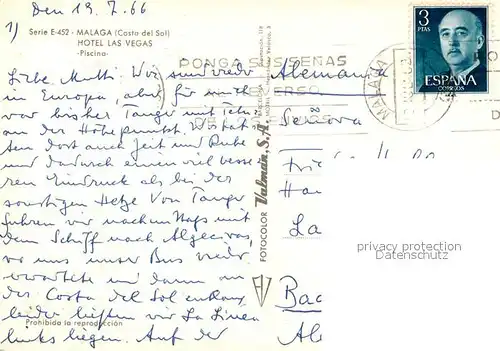 Den 19. 7. 66
1)
Serie E-452 - MALAGA (Costa del Sol)
HOTEL LAS VEGAS
-Piscina-
PONGA SUS SEÑAS
Liebe Mutti! Wir sind wieder
in Europa, aber für mich
war bisher Tanger mit Tetuan
der Höhepunkt. Wir hat
ten dort auch Zeit und Ruhe
und dadurch einen viel besse
ren Eindruck als bei der
sonstigen Hetze. Von Tanger
fuhren wir nachmittags mit
dem Schiff nach Algeciras,
wo uns unser Bus wieder
erwartete und dann an
der Costa del Sol entlang,
leider ließen wir La Linea
links liegen. Auf der
Prohibida la reproducción
FOTOCOLOR Valman, S.A.
Alemania
Señora
La
Bad
3
PTAS
ESPAÑA
CORREOS
MALAGA
privacy protection
Datenschutz